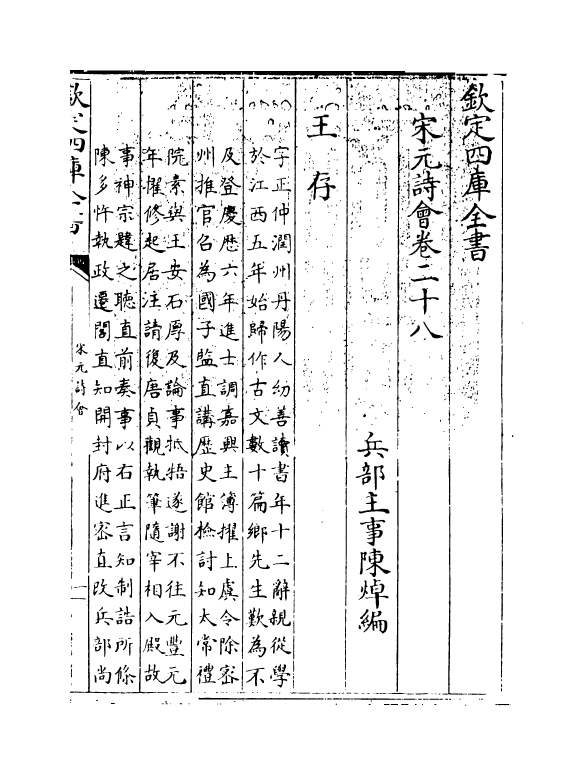 欽定四庫全書
宋元詩會卷二十八
兵部主事陳焯編
王存
字正仲潤州丹陽人幼善讀書年十二辭親從學
於江西五年始歸作古文數十篇鄉先生歎為不
及登慶歴六年進士調嘉興主簿擢上虞令除密
州推官召為國子監直講歴史館檢討知太常禮
院素與王安石厚及論事抵牾遂謝不往元豐元
年擢修起居注請復唐貞觀執筆隨宰相入殿故
事神宗韙之聽直前奏事以右正言知制誥所條
陳多忤執政遷閣直知開封府進密直改兵部尚
欽定四庫全書
宋元詩會
一